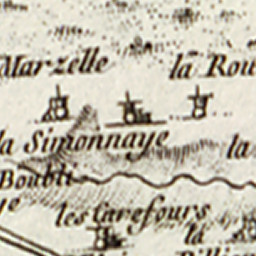 Marzelle la Rou
la Simonnaye la
Boubli
ye
les Carefours
la